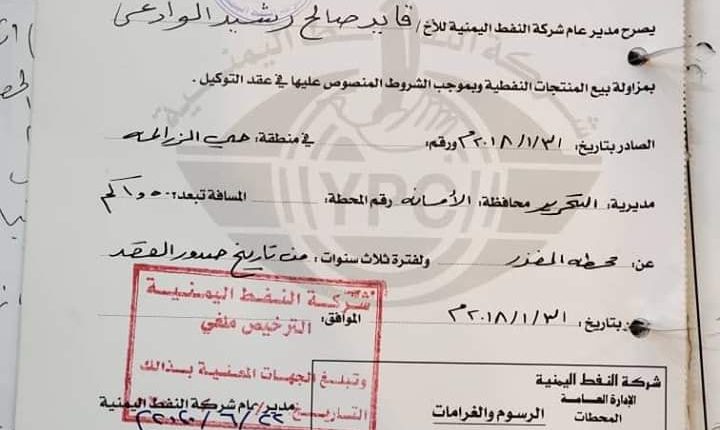 يصرح مدير عام شركة النفط اليمنية للأخ/ قايد صالح رشيد الوادعي
بمزاولة بيع المنتجات النفطية وبموجب الشروط المنصوص عليها في عقد التوكيل .
الصادر بتاريخ: ٢٠١٨/١/٣١م ورقم: في منطقة: حي الزراعه
مديرية: التحرير محافظة: الأمانه رقم المحطة: المسافة تبعد:
عن: محطه ولفترة ثلاث سنوات: من تاريخ صدور العقد
بتاريخ: ٢٠١٨/١/٣١م الموافق:
شركة النفط اليمنية
الترخيص ملغي
وتبلغ الجهات المعنية بذالك
التاريخ ٢٠٢٠/٦/٢٢
مدير عام شركة النفط اليمنية
شركة النفط اليمنية
الإدارة العامة
المحطات
الرسوم والغرامات
شركة النفط اليمنية
YPC